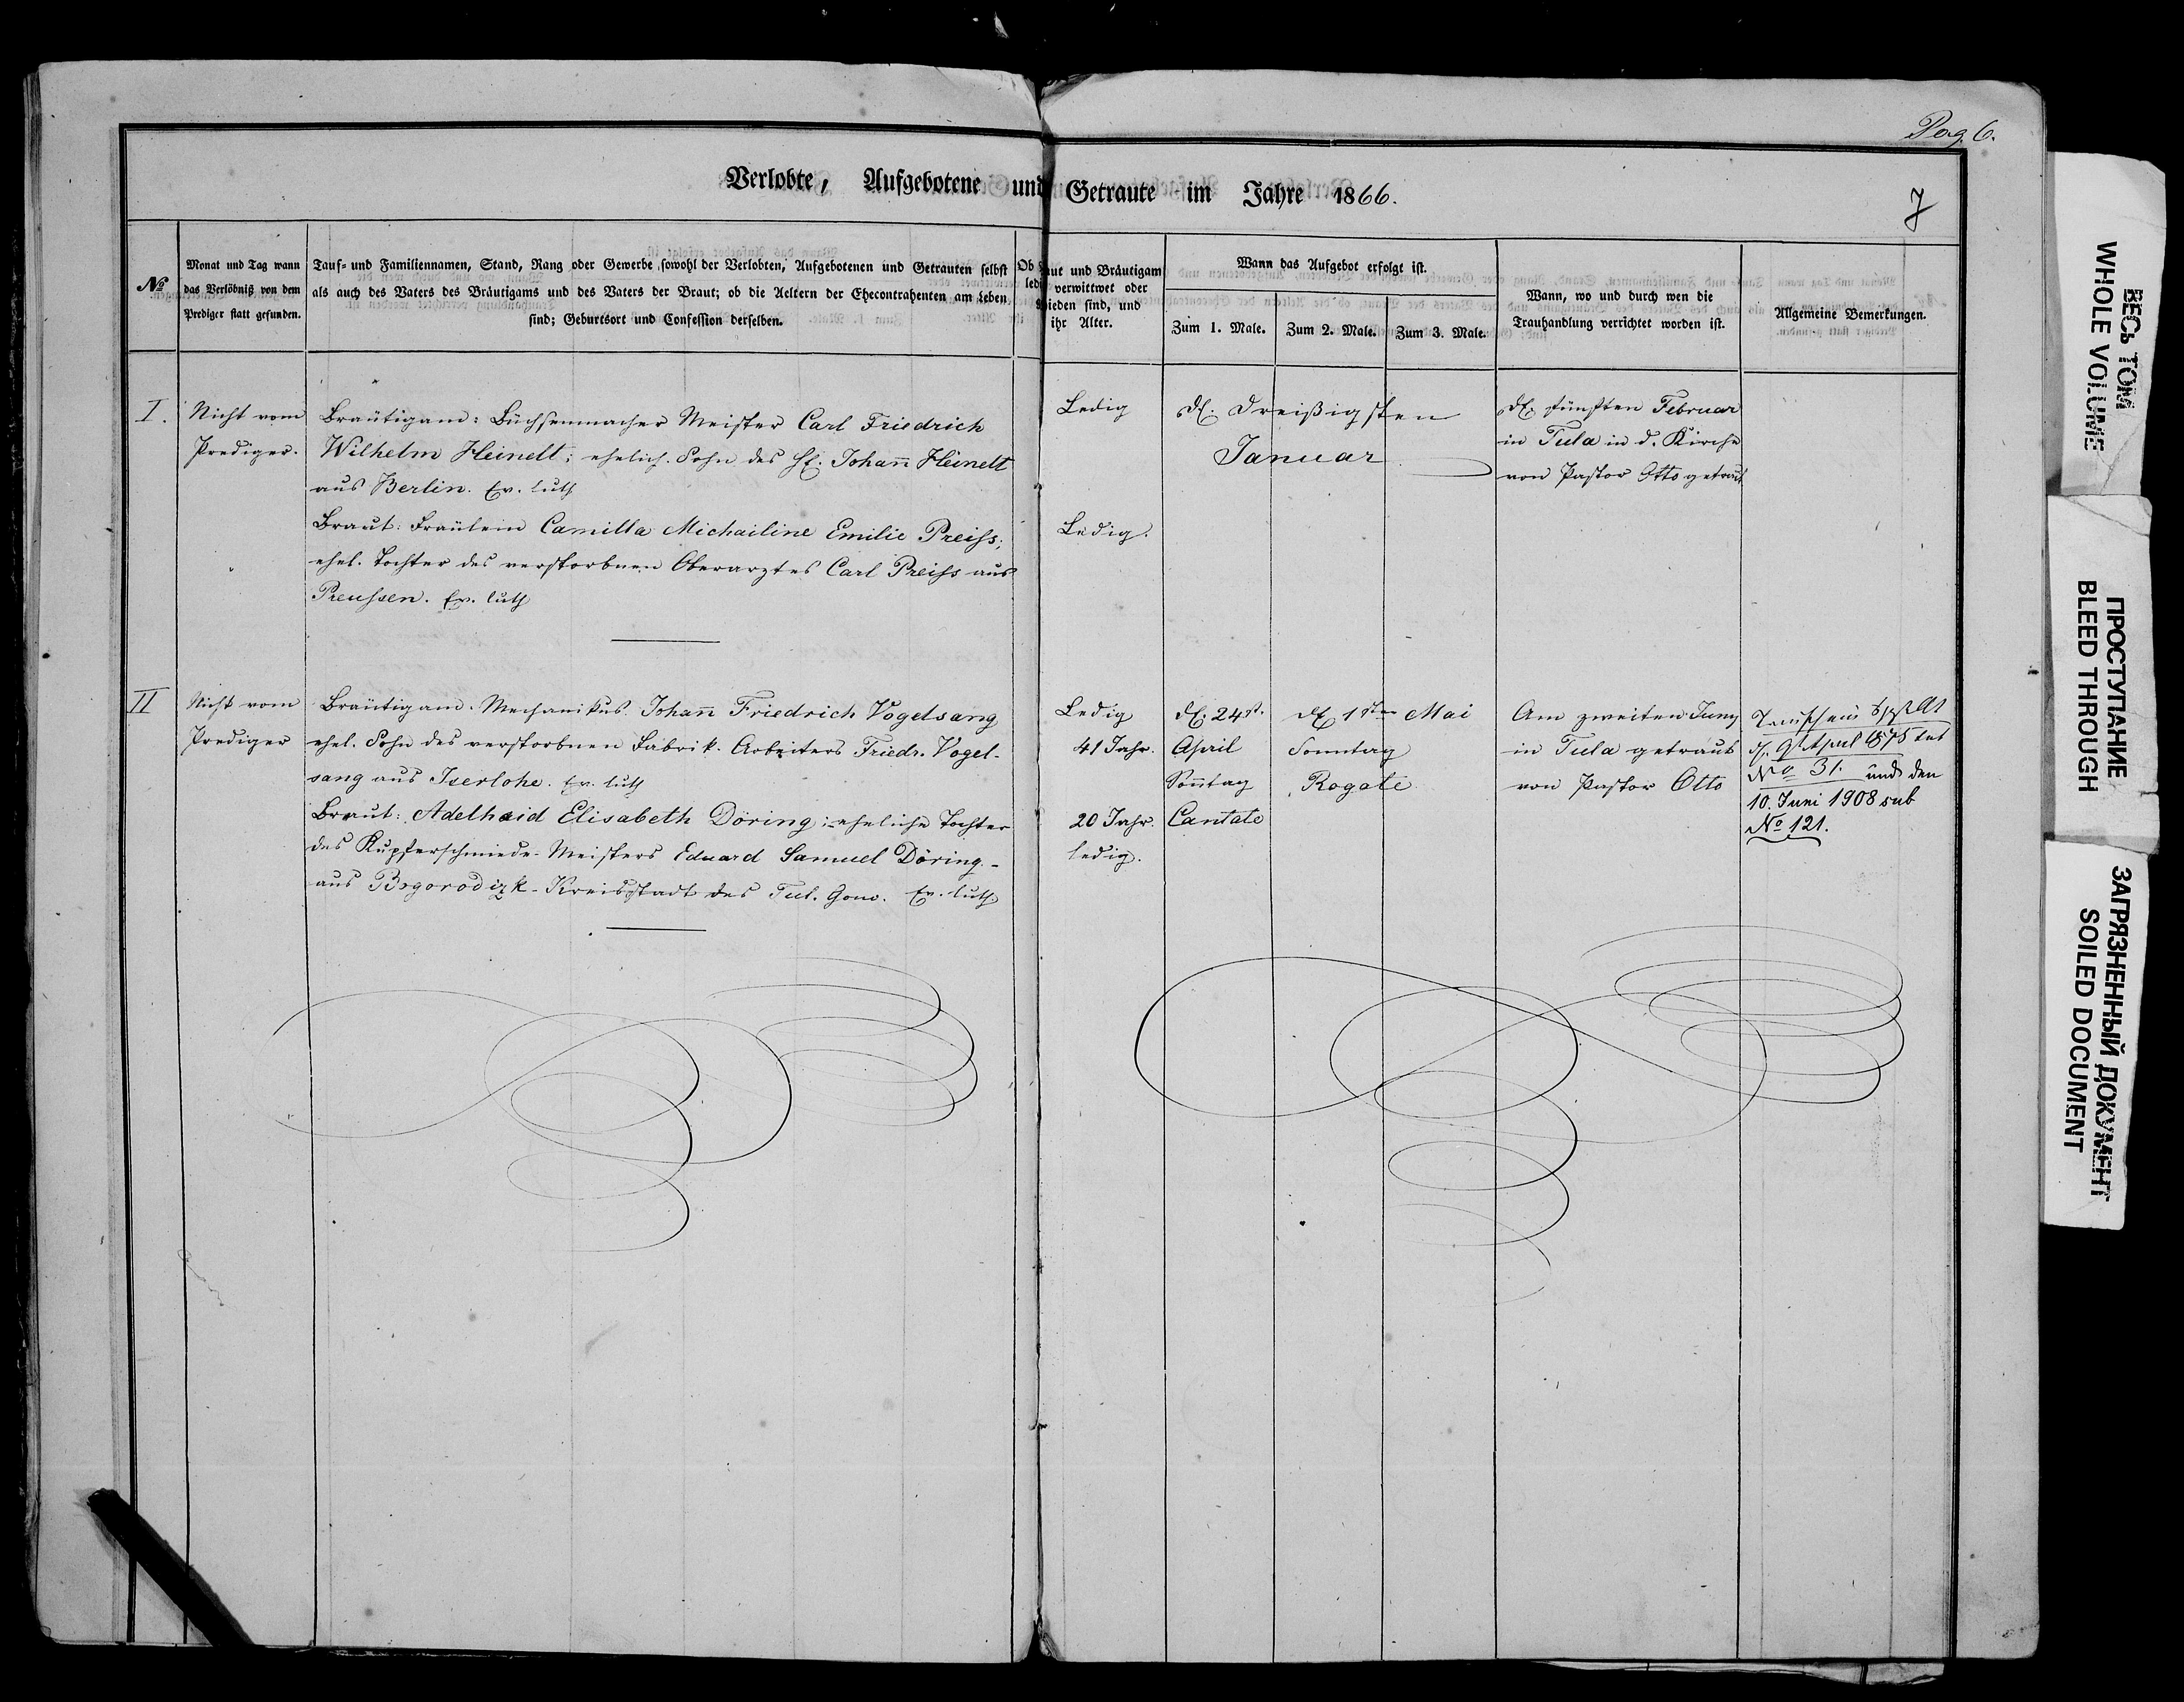 Pag. 6.
7
Verlobte, Aufgebotene und Getraute im Jahre 1866.
№
Monat und Tag wann
das Verlöbniß von dem
Prediger statt gefunden.
Tauf- und Familiennamen, Stand, Rang oder Gewerbe sowohl der Verlobten, Aufgebotenen und Getrauten selbst
als auch des Vaters des Bräutigams und des Vaters der Braut; ob die Aeltern der Ehecontrahenten am Leben
sind; Geburtsort und Confession derselben.
Ob Braut und Bräutigam
ledig, verwittwet oder
schieden sind, und
ihr Alter.
Wann das Aufgebot erfolgt ist.
Zum 1. Male.
Zum 2. Male.
Zum 3. Male.
Wann, wo und durch wen die
Trauhandlung verrichtet worden ist.
Allgemeine Bemerkungen.
I.
Nicht vom
Prediger.
Bräutigam: Büchsenmacher Meister Carl Friedrich
Wilhelm Heinelt; ehelich. Sohn des H. Johan̄ Heinelt
aus Berlin. Ev. luth
Braut: Fräulein Camilla Michailine Emilie Preiss;
ehel. Tochter des verstorbnen Oberarztes Carl Preiss aus
Preussen. Ev. luth
Ledig
Ledig.
d. Dreißigsten
Januar
d. fünften Februar
in Tula in d. Kirche
von Pastor Otto getraut
II
Nicht vom
Prediger
Bräutigam. Mechanikus Johan̄ Friedrich Vogelsang
ehel. Sohn des verstorbnen Fabrik. Arbeiters Friedr. Vogel-
sang aus Iserlohe. Ev. luth
Braut: Adelhaid Elisabeth Döring; eheliche Tochter
des Kupferschmiede-Meisters Eduard Samuel Döring.-
aus Bogorodizk-Kreisstadt des Tul. Gouv. Ev. luth.
Ledig
41 Jahr.
20 Jahr.
ledig.
d. 24st.
April
Son̄tag
Cantate
d. 1sten Mai
Sonntag
Rogate
Am zweiten Juny
in Tula getraut
von Pastor Otto
Trauschein
d. 9 April 1875
№ 31. und den
10. Juni 1908 sub
№ 121.
ВЕСЬ ТОМ
WHOLE VOLUME
ПРОСТУПАНИЕ
BLEED THROUGH
ЗАГРЯЗНЕННЫЙ ДОКУМЕНТ
SOILED DOCUMENT